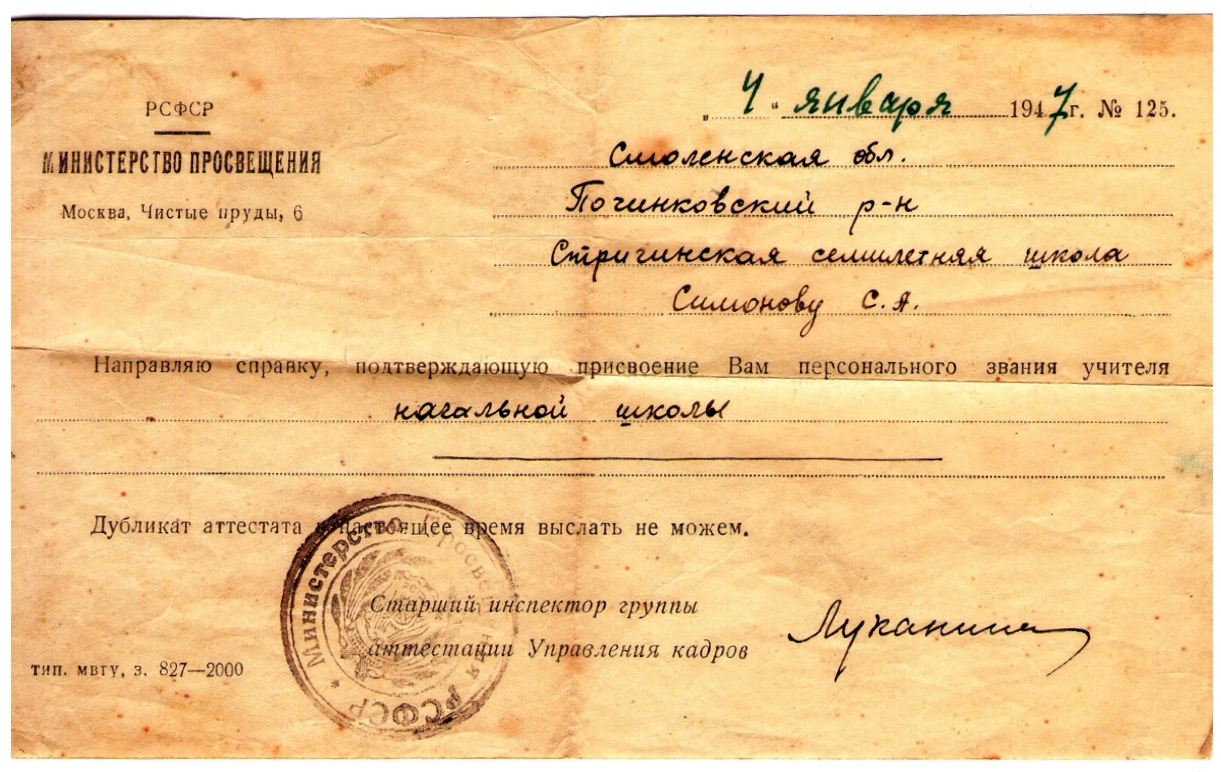 РСФСР
МИНИСТЕРСТВО ПРОСВЕЩЕНИЯ
Москва, Чистые пруды, 6
„ 4 “ января 1947г. № 125.
Смоленская обл.
Починковский р-н
Стригинская семилетняя школа
Симонову С.А.
Направляю справку, подтверждающую присвоение Вам персонального звания учителя
начальной школы
Дубликат аттестата в настоящее время выслать не можем.
Министерство Просвещения РСФСР *
Старший инспектор группы
аттестации Управления кадров
Луканина
тип. мвту, з. 827—2000